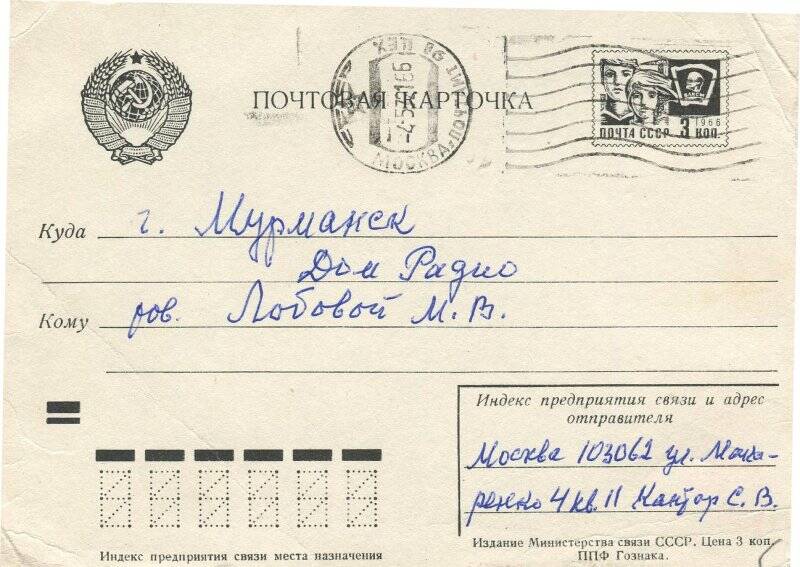 ПОЧТОВАЯ КАРТОЧКА
МОСКВА
ПОЧТАМТ
1966
ПОЧТА СССР 3 КОП.
Куда г. Мурманск
Дом Радио
Кому тов. Лобовой М. В.
Индекс предприятия связи и адрес
отправителя
Москва 103062 ул. Мака-
ренко 4 кв. 11 Кантор С. В.
Индекс предприятия связи места назначения
Издание Министерства связи СССР. Цена 3 коп.
ППФ Гознака.